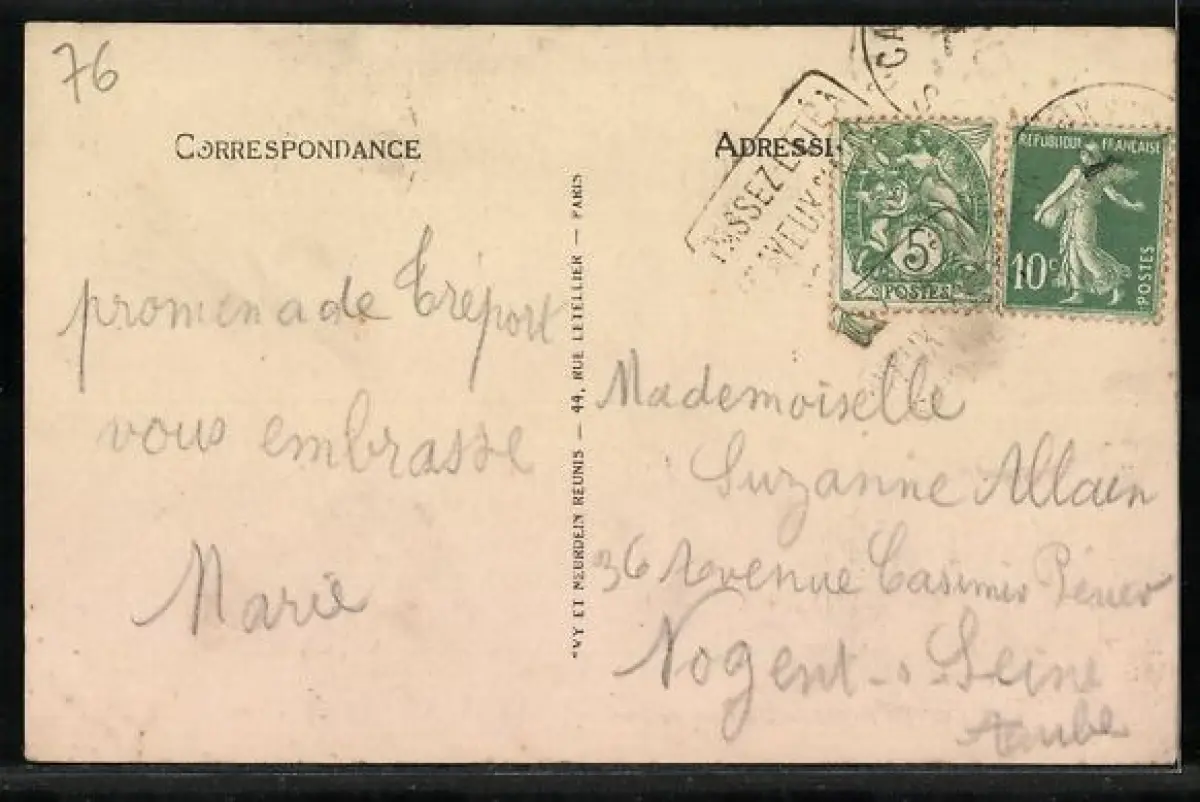 76
CORRESPONDANCE
promenade Tréport
vous embrasse
Marie
VY ET NEURDEIN RÉUNIS — 44, RUE LETELLIER — PARIS
ADRESS
PASSEZ L'ÉTÉ A
CA
5c
POSTES
RÉPUBLIQUE FRANÇAISE
10c
POSTES
Mademoiselle
Suzanne Allain
36 Avenue Casimir Périer
Nogent-s-Seine
Aube